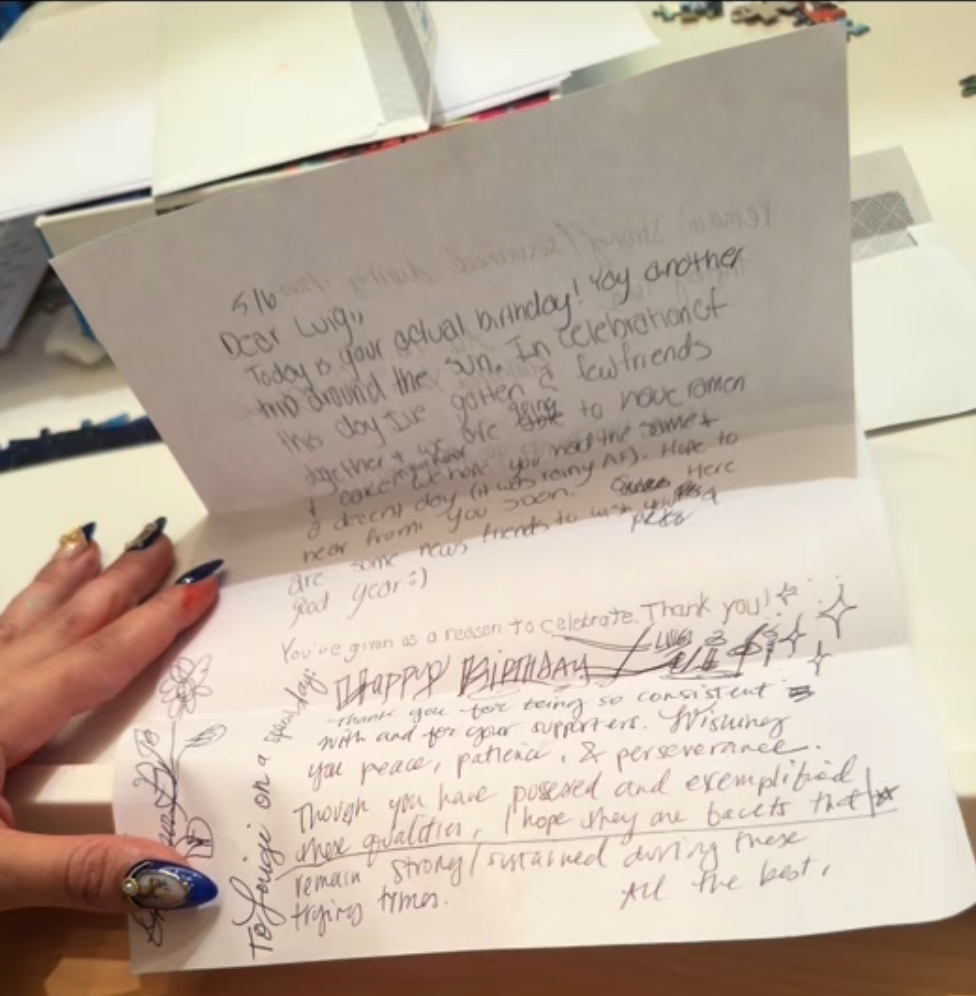 5/6
Dear Luigi,
Today is your actual birthday! Yay another
trip around the sun. In celebration of
this day I've gotten a few friends
together & we are going to have ramen
& cake in your honor. We hope you had the ramen &
a decent day (it was rainy AF). Hope to
hear from you soon. Here
are some new friends to wish you a
good year :)
You've given us a reason to celebrate. Thank you!
HAPPY BIRTHDAY LUIGI
Thank you for being so consistent
with and for your supporters. Wishing
you peace, patience, & perseverance.
Though you have possesed and exemplified
these qualities, I hope they are facets that
remain strong/sustained during these
trying times. All the best,
To Luigi on a special day: